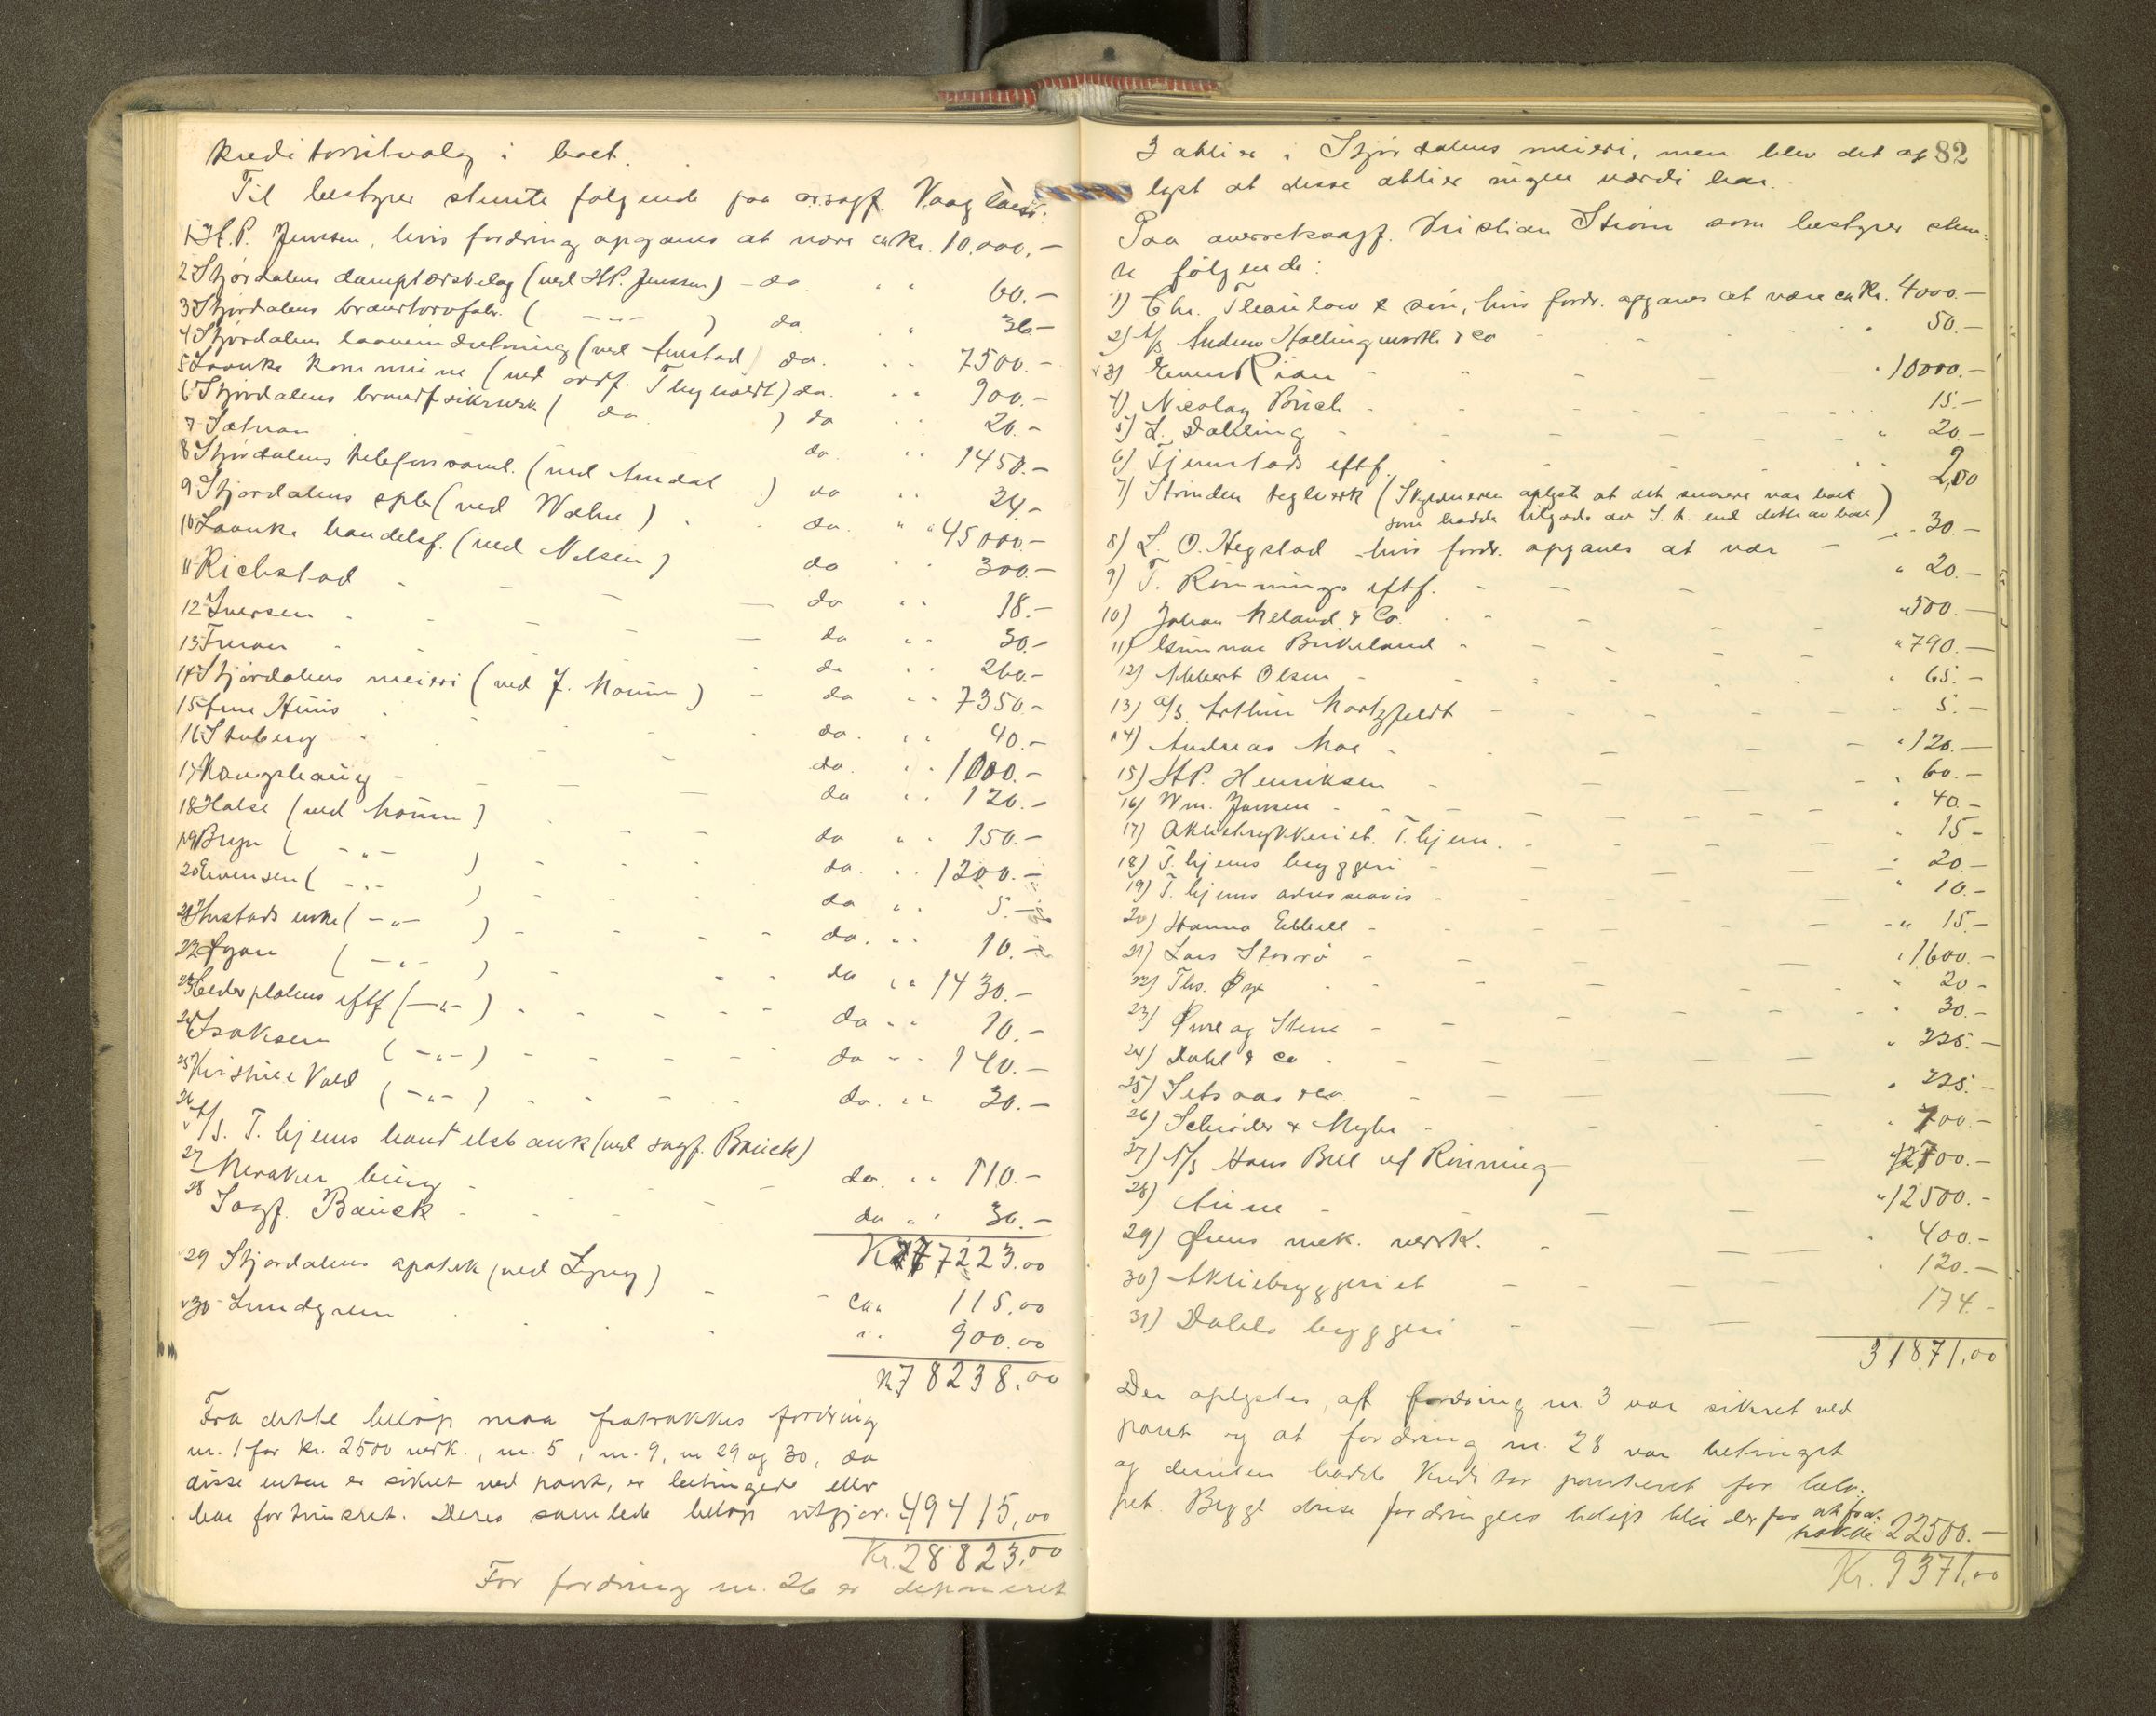 kreditorutvalg i boet.
Til bestyrer stemte følgende paa orsagf. Vaagland:
1 H.P. Jenssen, hvis fordring opgaves at være ca Kr. 10,000,-
2 Stjørdalens damptærskelag (ved H.P. Jenssen) - do. " " 60.-
3 Stjørdalens brændtorvfabr. ( -"- ) do " 36-
4 Stjørdalens laaneindretning (ved Amstad) do. " " 7500.-
5 Laanke kommune (ved ordf. Thyholdt) do. " " 900.-
6 Stjørdalens brandfsikrsk ( do ) do " " 20.-
7 Sætnan do. " " 1450.-
8 Stjørdalens telefonsaml. (ved Arndal) do " " 24.-
9 Stjørdalens spb (ved Welve) do. " " 45000.-
10 Laanke handelsf. (ved Nilsen) do " " 300.-
11 Richstad - do " " 18.-
12 Iversen - do " " 30.-
13 Fruan - do " " 260.-
14 Stjørdalens meieri (ved J. Moum) - do " " 7350.-
15 Arne Huus do. " " 40.-
16 Stuberg do. " " 1000.-
17 Kongshaug - do " " 120.-
18 Halse (ved Moum) do " " 150.-
19 Bryn ( -"- ) do. " " 1200.-
20 Evensen ( -"- ) do " " 5.-
21 Hustads enke ( -"- ) do. " " 10.-
22 Øyan ( -"- ) do " " 1430.-
23 Cederplatens eftf ( -"- ) do " " 10.-
24 Isaksen ( -"- ) do " " 140.-
25 Kirstine Vold ( -"- ) do. " " 30.-
26 A/S. T.hjems handelsbank (ved sagf. Bauck)
27 Meraker brug - do. " " 110.-
28 Sagf. Bauck - do " " 30.-
Kr 77223.00
29 Stjørdalens apotek (ved Lyng) - ca. 115.00
30 Lundgreen " " 900.00
Kr 78238.00
Fra dette beløp maa fratrækkes fordring
nr. 1 for kr. 2500 verk., nr. 5, nr. 9, nr 29 og 30, da
disse enten er sikret ved pant, er betingede eller
har fortrinsret. Deres samlede beløp utgjør. 49415,00
Kr. 28823,00
For fordring nr. 26 er deponeret
82
3 aktier i Stjørdalens meieri, men blev det op
lyst at disse aktier ingen værdi har.
Paa overretssagf. Kristian Strøm som bestyrer stem-
te følgende:
1) Chr. Thaulow & søn, hvis fordr. opgaves at være ca Kr. 4000.-
2) A/S Andrew Hollingworth & co - 50.-
3) Evens Rian - 10000.-
4) Nicolay Buch - 15.-
5) L. Dahling - 20.-
6) Tjernstads eftf. - 2,00
7) Strinden teglverk (Skyldneren oplyste at det snarere var boet
som hadde tilgode av S. t. end dette av boet) " 30.-
8) L. O. Hegstad - hvis fordr. opgaves at vær - " 20.-
9) T. Rønnings eftf. - 500.-
10) Johan Meland & Co. - " 790.-
11) Gunnar Birkeland - " 65.-
12) Abbert Olsen - " 5.-
13) A/S. Arthur Mortzfeldt - " 120.-
14) Andreas Moe - 60.-
15) H.P. Henriksen - 40.-
16) Wm. Jansen - " 15-
17) Aktietrykkeriet. T.hjem. - 20.-
18) T.hjems bryggeri - " 10.-
19) T.hjems adresseavis - " 15.-
20) Hanna Ebbell - " 1600.-
21) Lars Storrø - 20.-
22) Ths. Øye - " 30.-
23) Øvre og Stene - " 225.-
24) Dahl & co - " 225.-
25) Setsaas & co. - " 700.-
26) Schrøder & Myhre -
27) A/S Hans Bull v/ Rønning - 00.-
28) Aune - " 12500.-
29) Ørens mek. verk. - 400.-
30) Aktiebryggeriet - 120.-
31) Dahls bryggeri - 174.-
31871,00
Der oplystes, at fordring nr. 3 var sikret ved
pant og at fordring nr. 28 var betinget
og desuten hadde kreditor panteret for belø-
pet. Begge disse fordringers beløp blir derfor at fra-
trække 22500.-
Kr. 9371,00